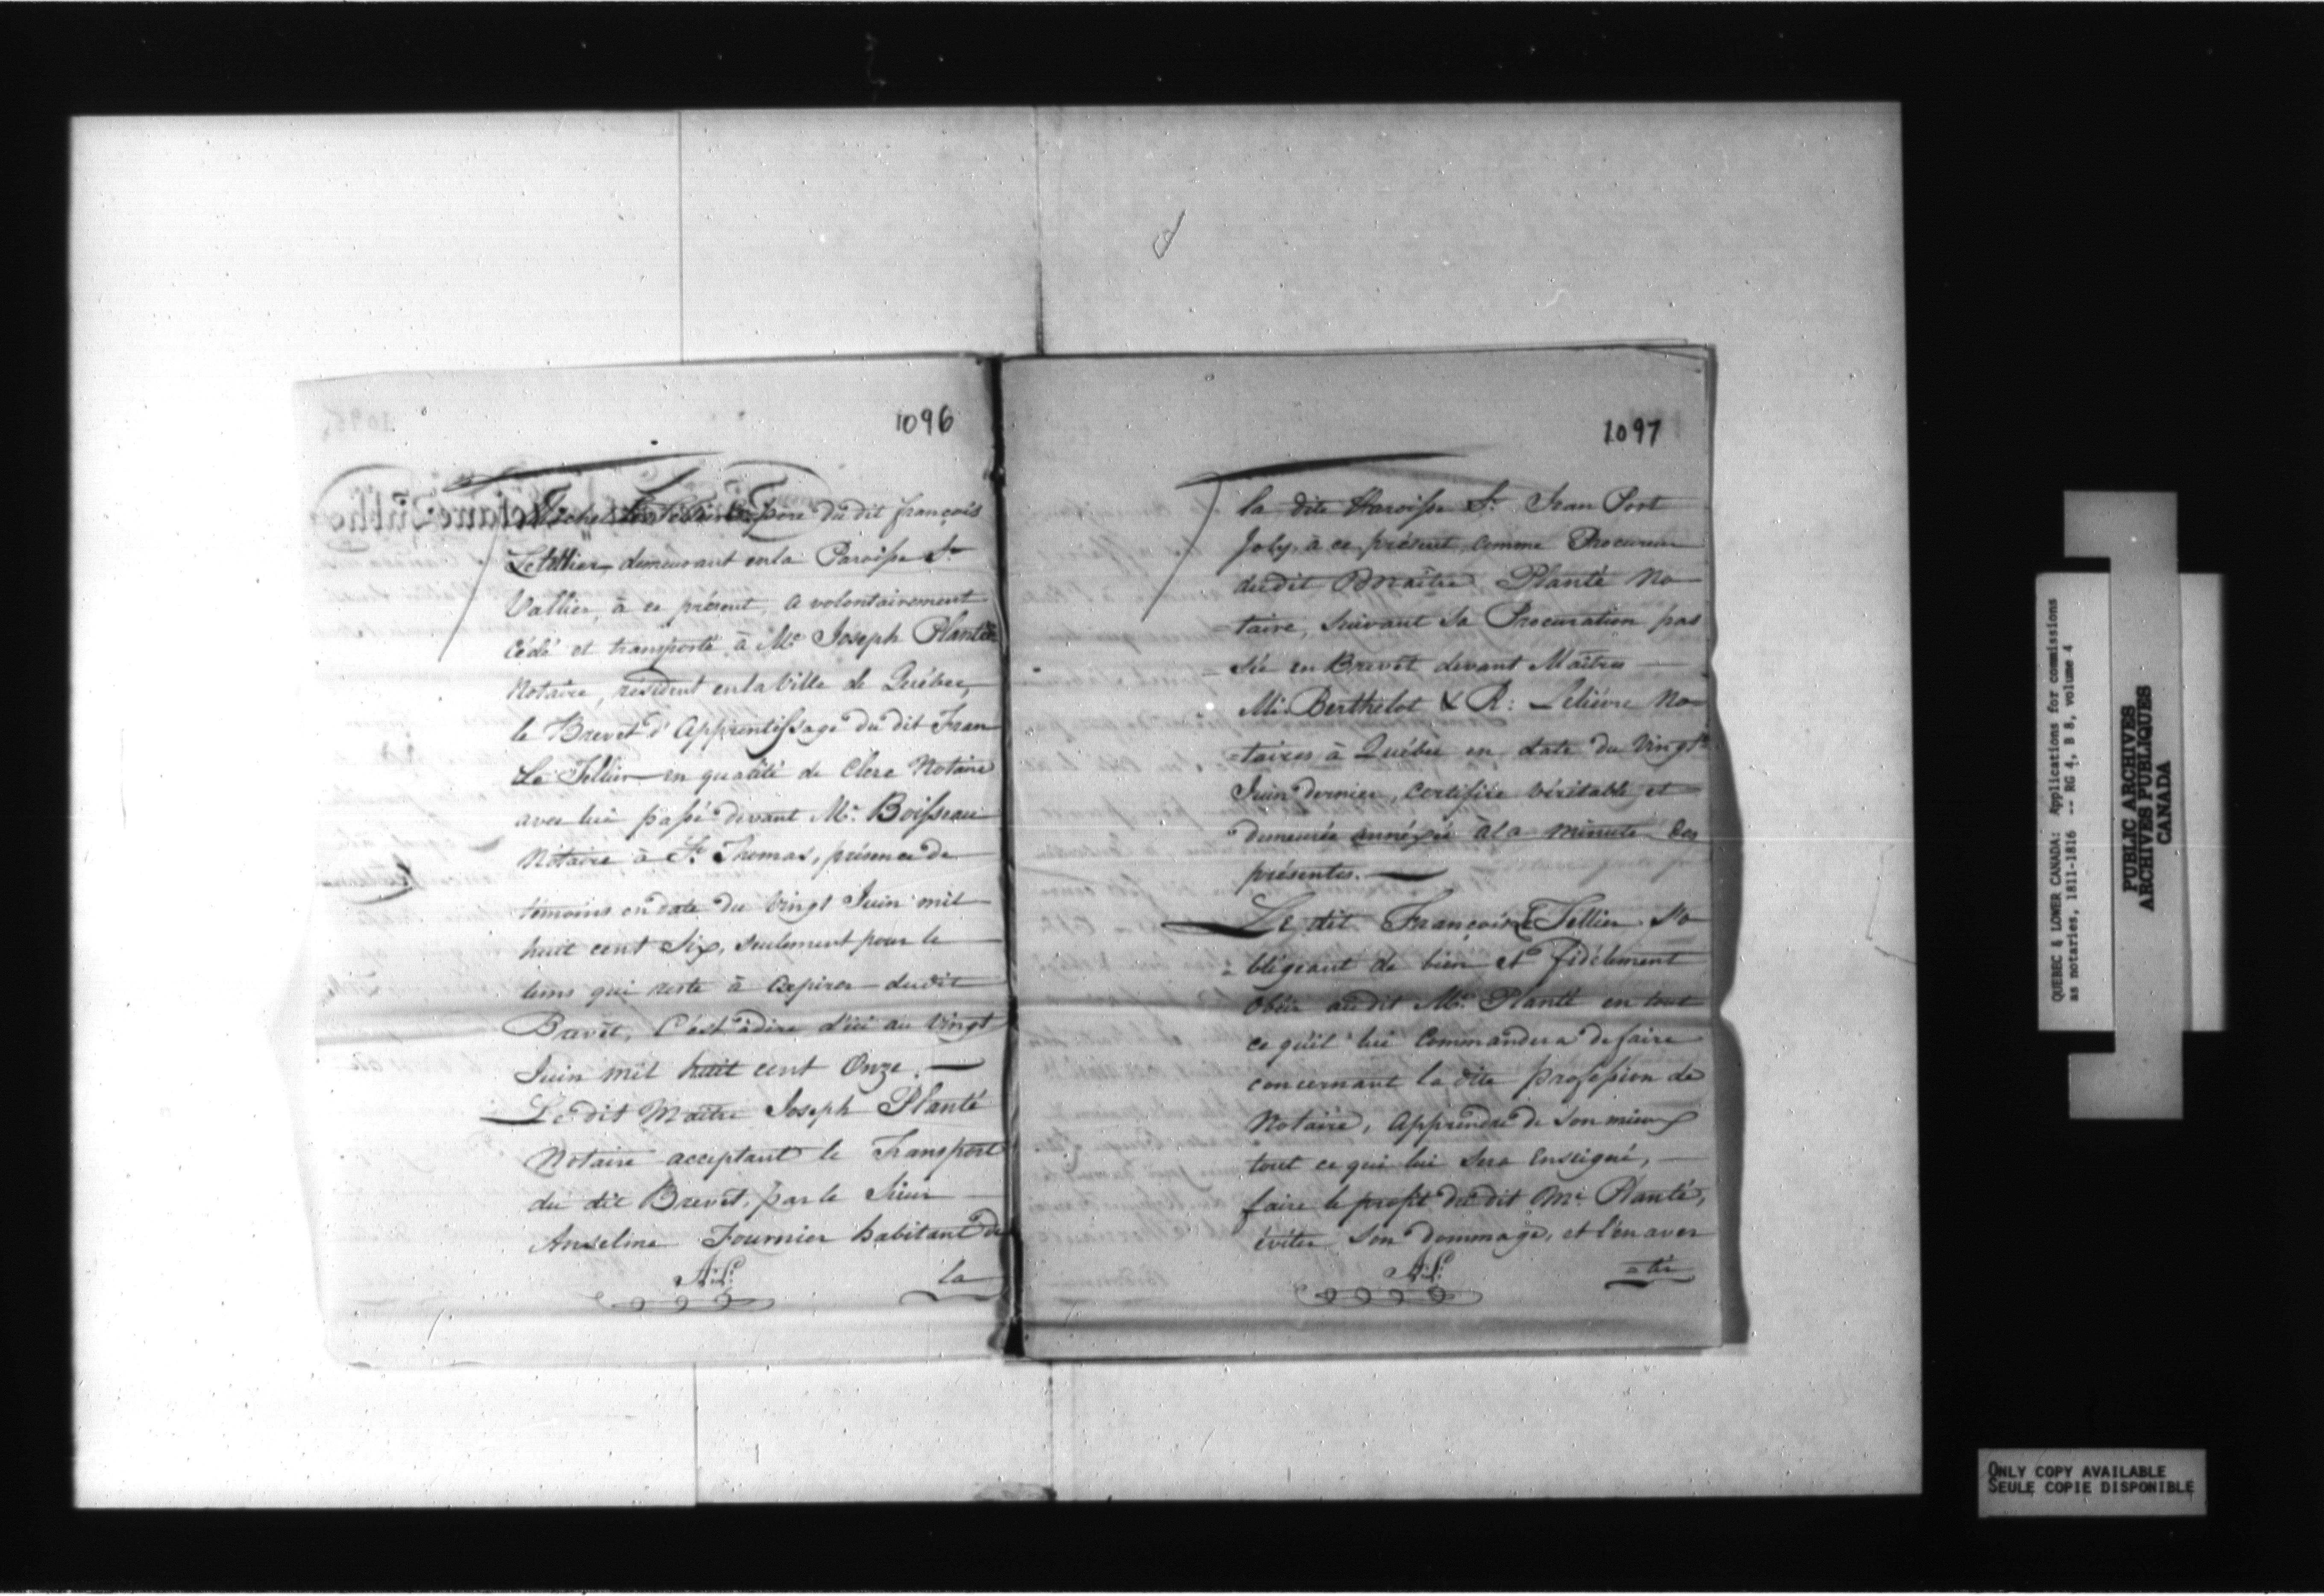 1096
Michel Le Tellier père du dit françois
Letellier, demeurant en la Paroisse St.
Vallier, à ce présent, a volontairement
Cédé et transporté à Me. Joseph Planté
Notaire, résident en la Ville de Québec,
le Brevet d'Apprentissage du dit Fran
Le Tellier en qualité de Clerc Notaire
avec lui passé devant Mr. Boisseau
Notaire à St. Thomas, présence de
témoins en date du Vingt Juin mil
huit cent Six, seulement pour le
tems qui reste à Expirer dudit
Brevêt, C'est àdire d'ici au Vingt
Juin mil huit cent Onze.
Le dit Maître Joseph Planté
Notaire acceptant le Transport
du dit Brevet, par le Sieur
Anselme Fournier habitant de
A:L:
la
1097
la dite Paroisse St. Jean Port
Joly, à ce présent, comme Procureur
dudit Maître Planté No
=taire, suivant sa Procuration pas
=sée en Brevêt devant Maîtres
M: Berthelot & R: Lelièvre No=
=taires à Québec en date du Vingt
Juin dernier, Certifiée véritable et
demeurée annéxée à la minute des
présentes.
Le dit François Le Tellier s'o
=bligeant de bien et fidèlement
Obéir audit Me. Planté en tout
ce qu'il lui Commandera de faire
concernant la dite profession de
Notaire, Apprendre de son mieux
tout ce qui lui sera Enseigné,
faire le profit du dit Me. Planté,
éviter son dommage, et l'en aver
A:L:
=tir
QUEBEC & LOWER CANADA: Applications for commissions
as notaries, 1811-1816 -- RG 4, B 8, volume 4
PUBLIC ARCHIVES
ARCHIVES PUBLIQUES
CANADA
ONLY COPY AVAILABLE
SEULE COPIE DISPONIBLE